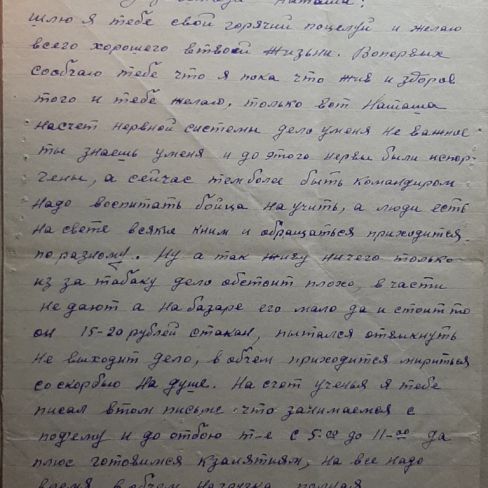 Наташа!
Шлю я тебе свой горячий поцелуй и желаю
всего хорошего втвоей жизьни. Вопервых
сообчаю тебе что я пока что жив и здоров
того и тебе желаю, только вот Наташа
насчет нервной системы дело уменя не важное
ты знаешь уменя и до этого нервы были испор-
чены, а сейчас темболее быть командиром
надо воспитать бойца научить, а люди есть
на свете всякие к ним и обращаться приходится
поразному. Ну а так живу ничего только
из за табаку дело обстоит плохо, в части
не дают а на базаре его мало да и стоит то
он 15-20 рублей стакан, пытался отвыкнуть
не выходит дело, вобчем приходится мириться
со скорбью на душе. На счет ученья я тебе
писал втом письме что занимаемся с
подъему и до отбою т-е с 5-00 до 11-00 да
плюс готовимся кзанятиям, на все надо
время, вобчем нагрузка полная